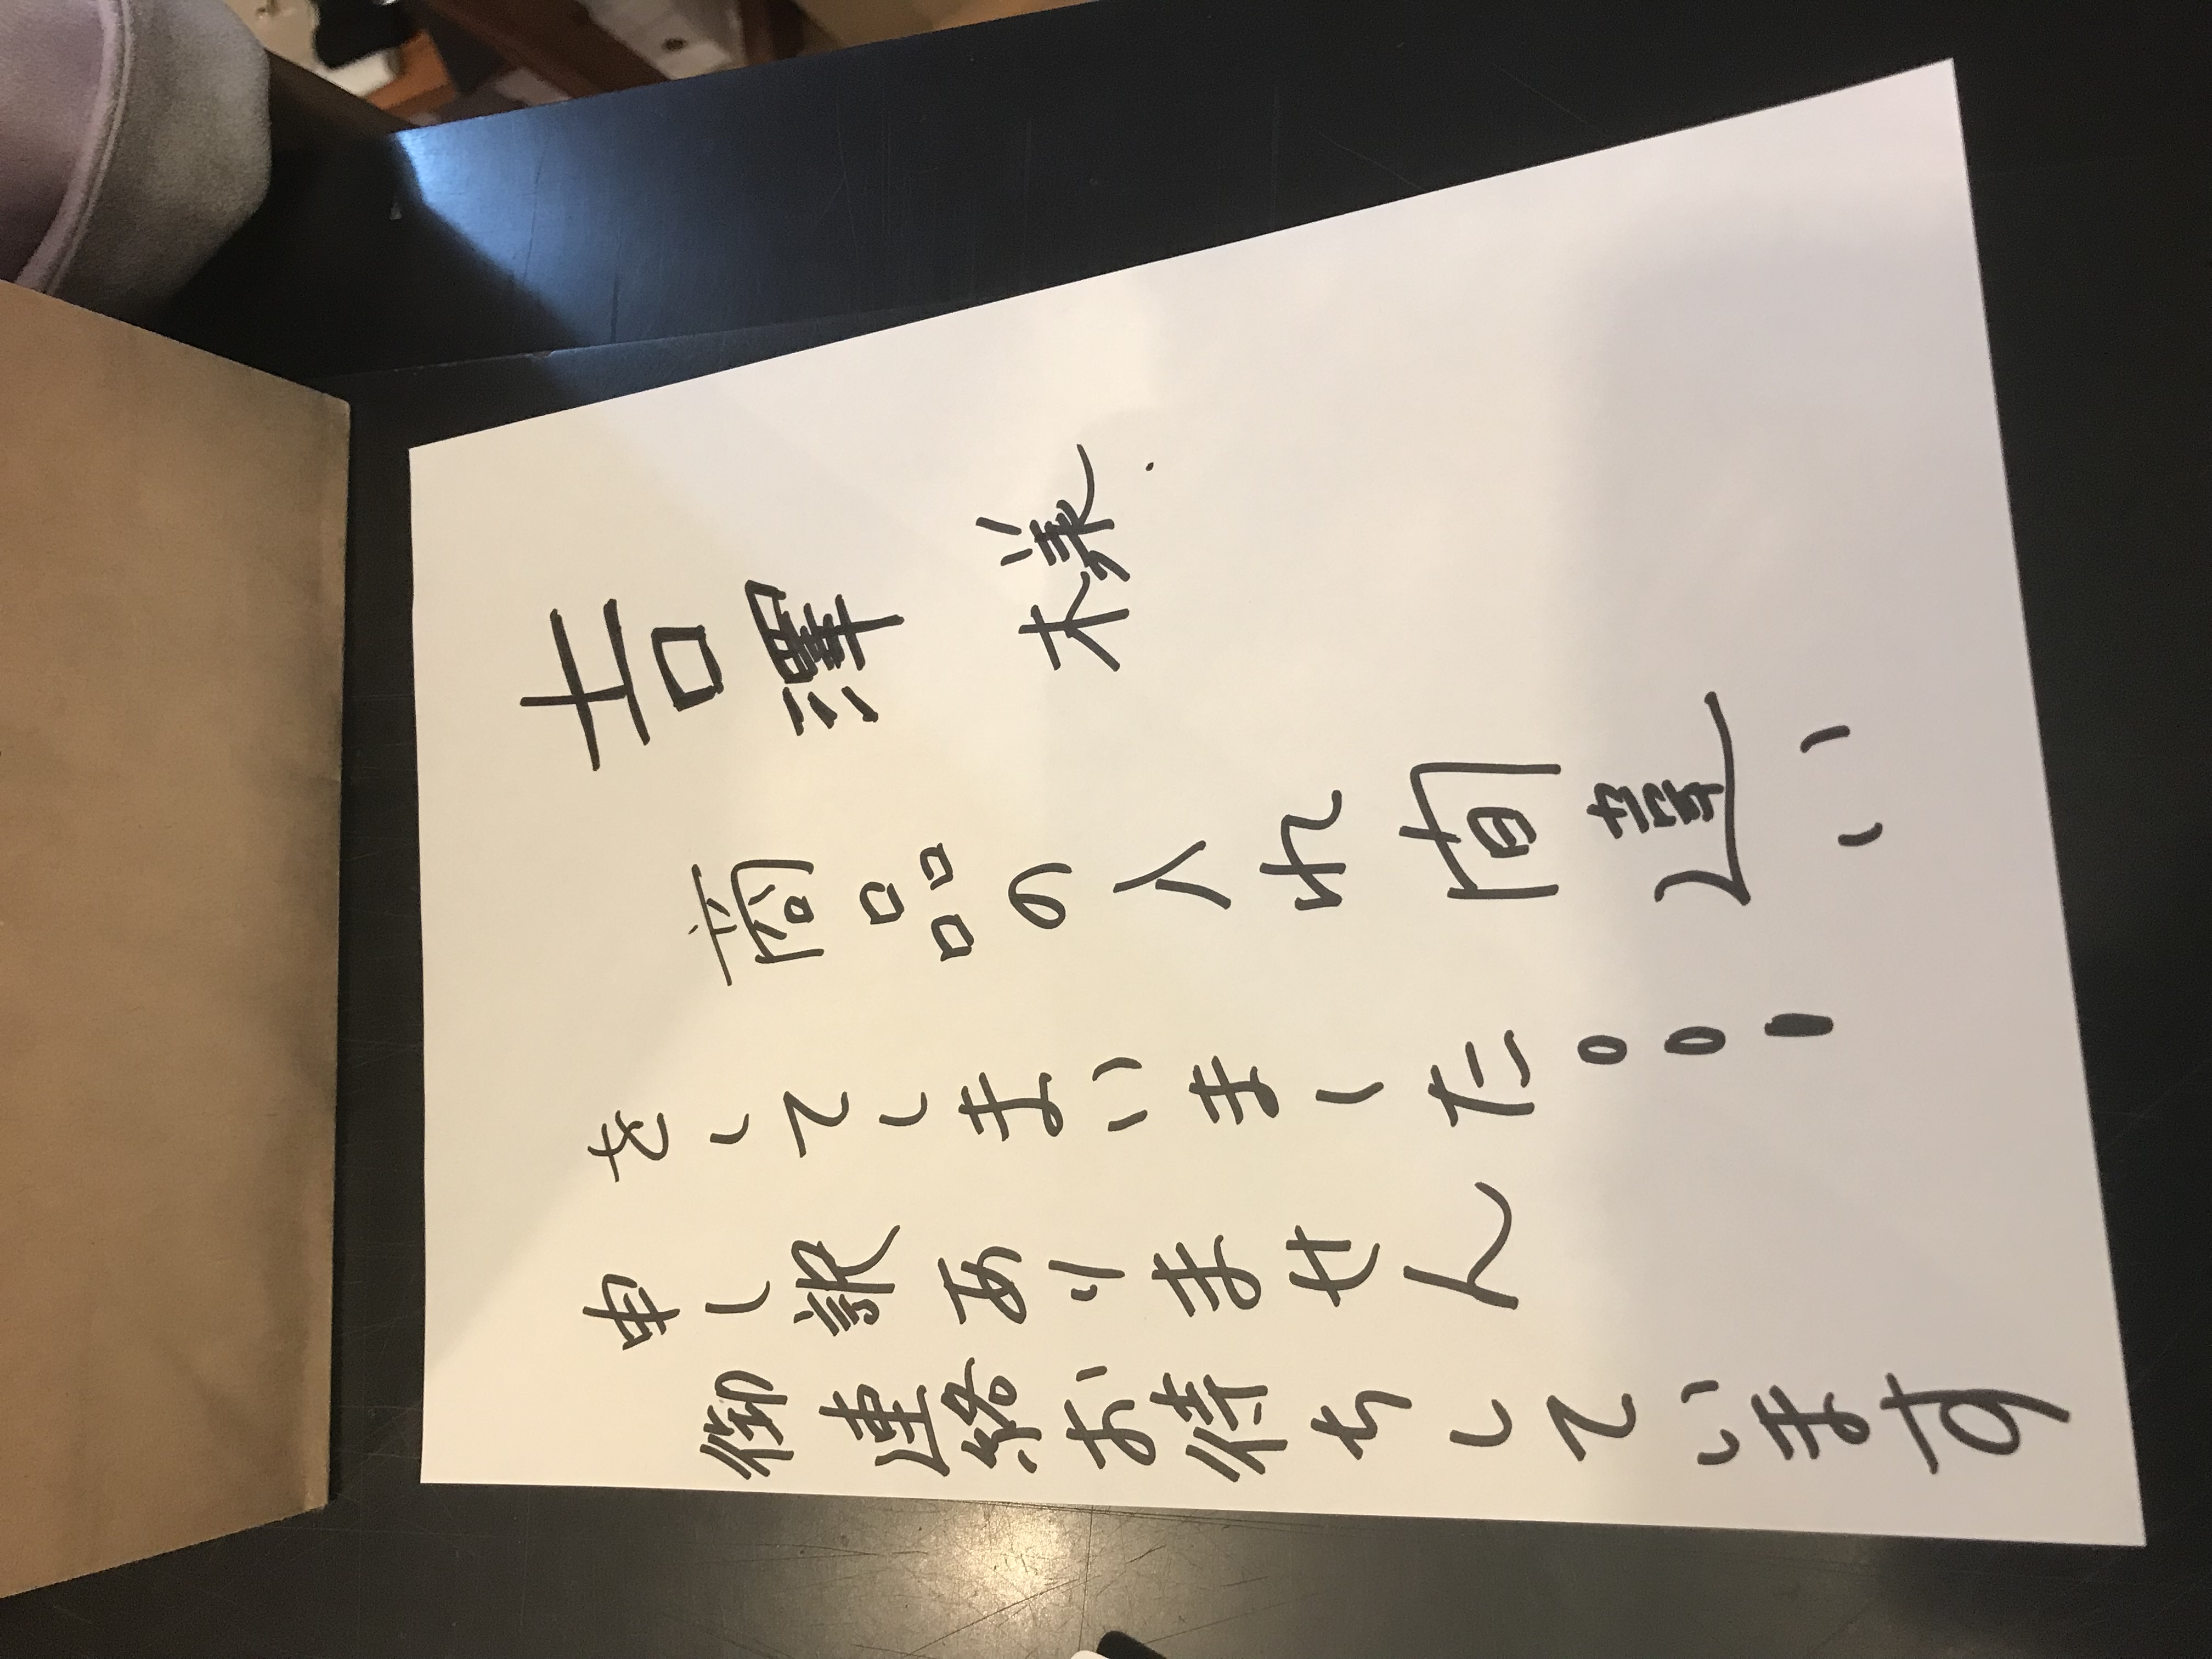 吉澤 様
商品の入れ間違い
をしてしまいました。。。
申し訳ありません
御連絡お待ちしています